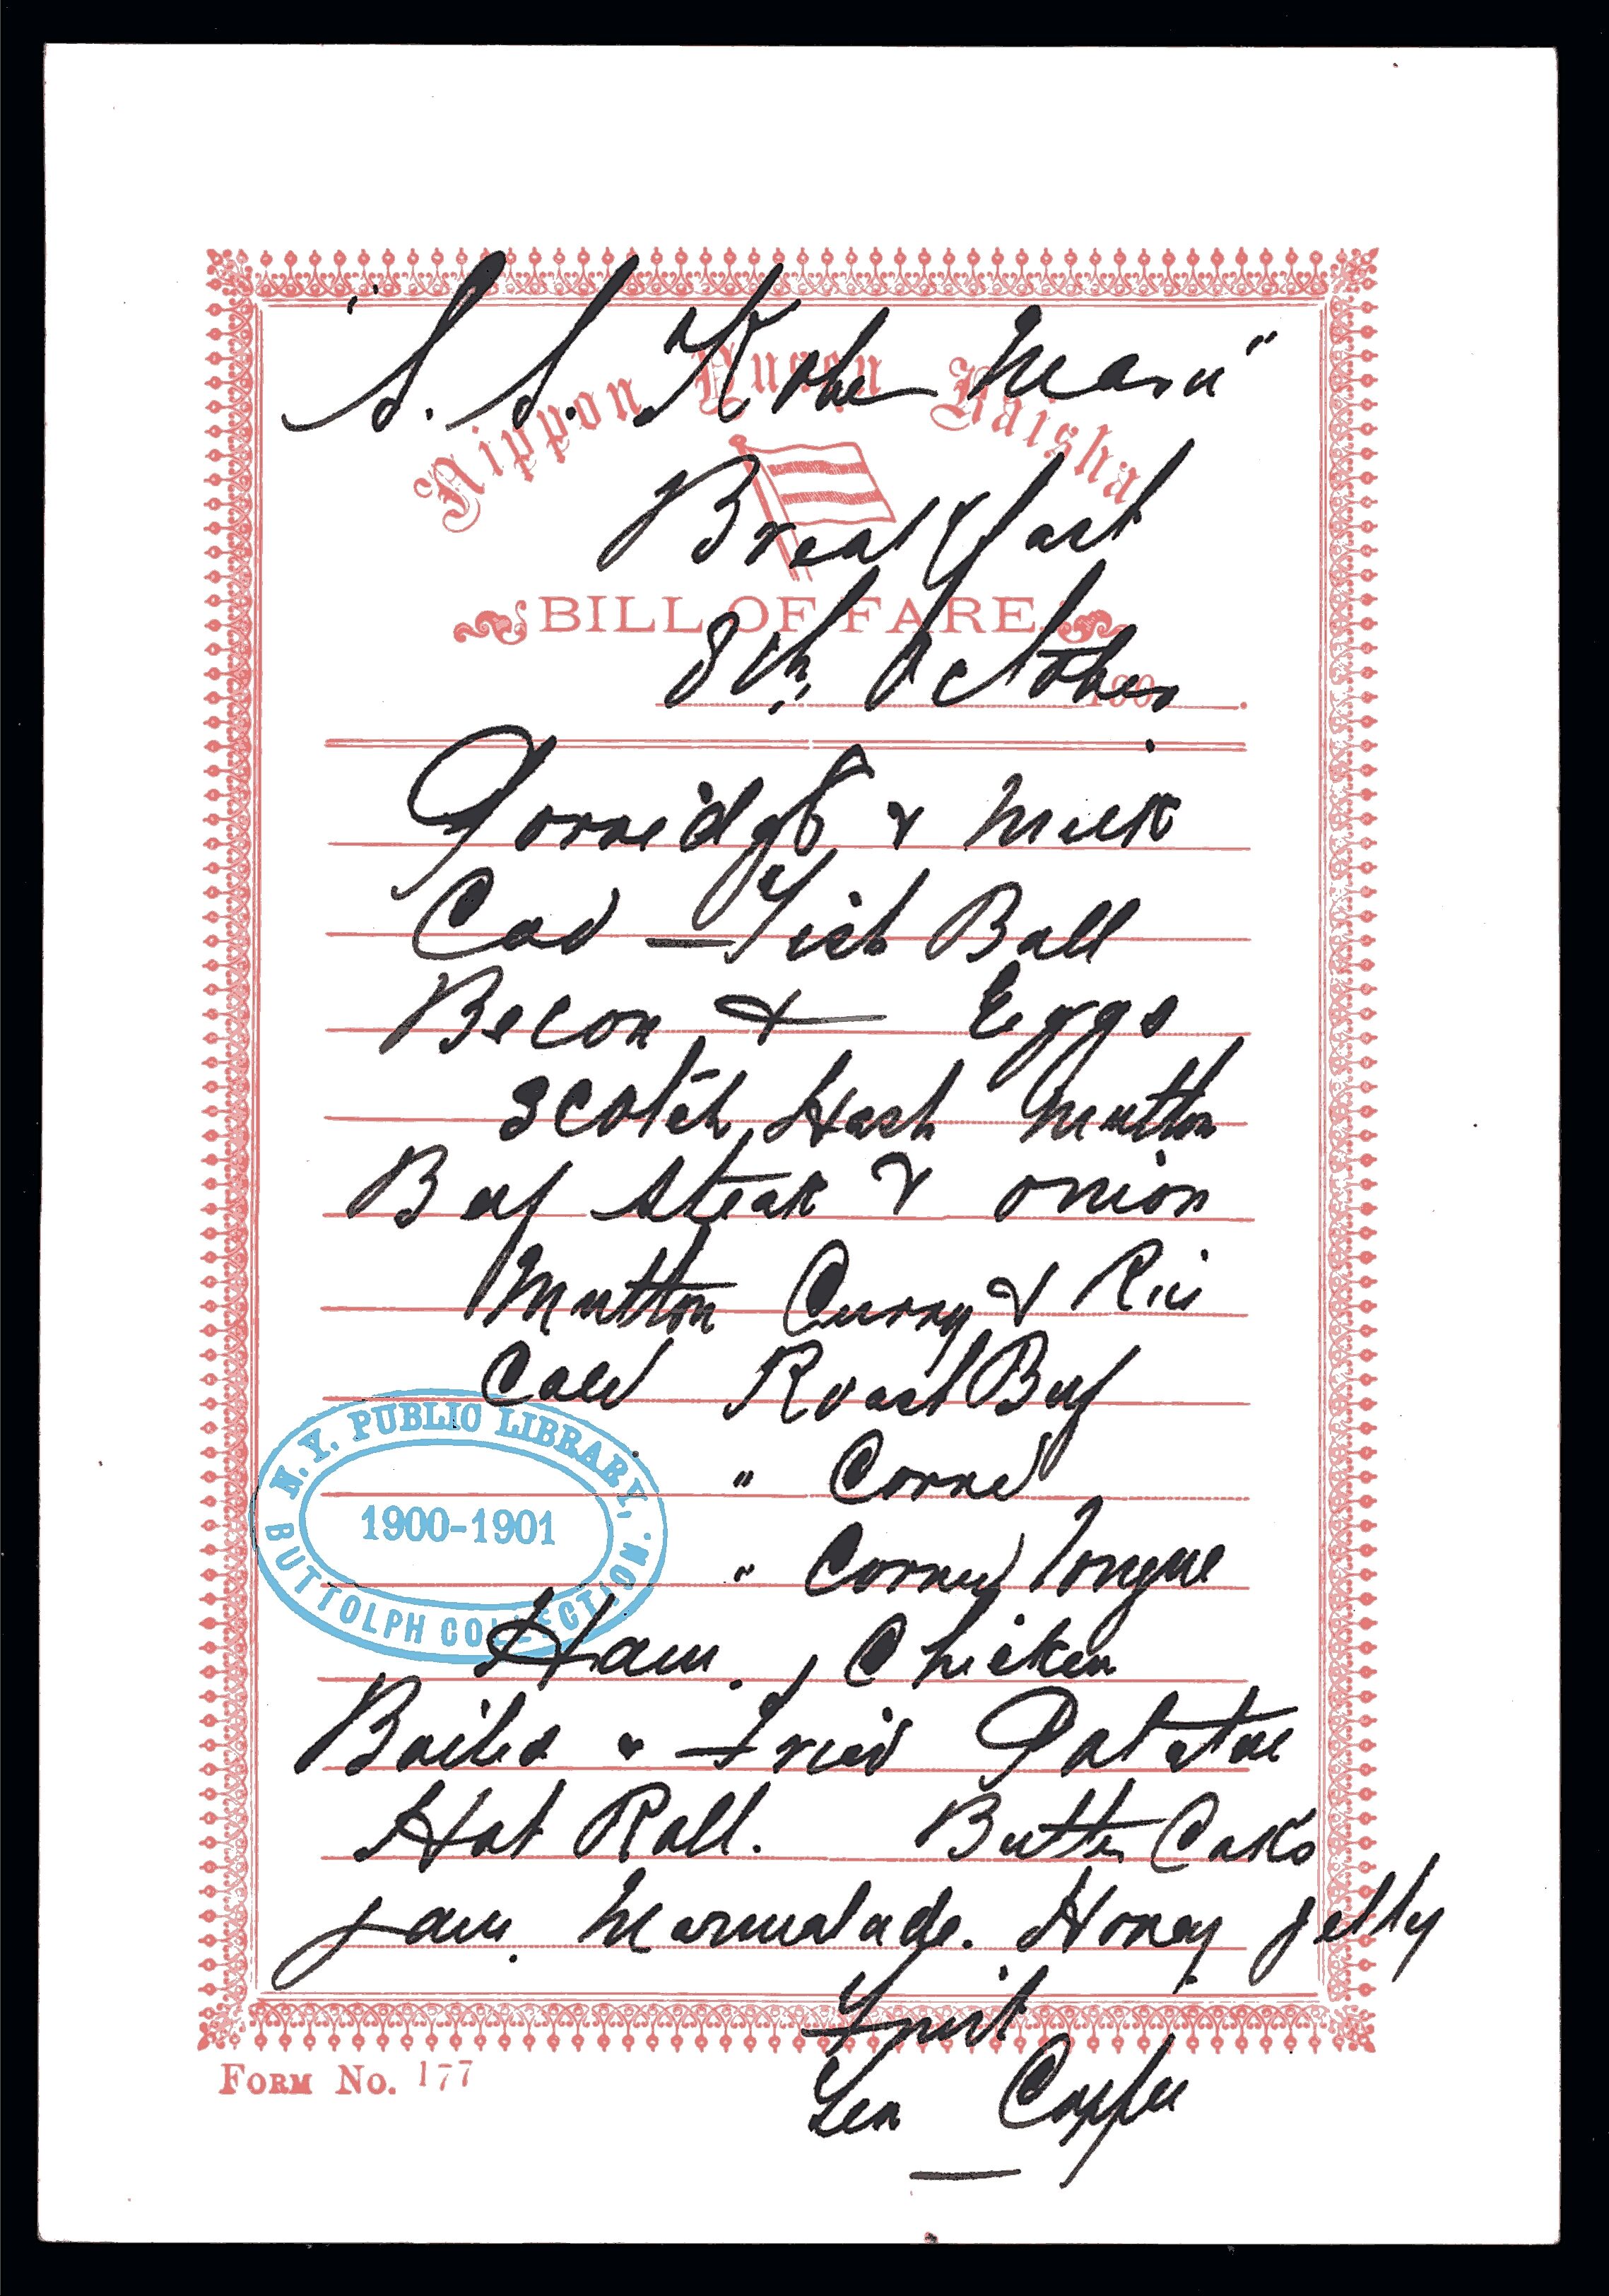 "S. S. Kobe Maru"
Nippon Yusen Kaisha
Breakfast
BILL OF FARE
8th, October
190
Porridge & Milk
Cod - Fish Ball
Becon & Eggs
Scotch Hash Mutton
Beef steak & onion
Mutton Curry & Rice
Cold Roast Beef
" Corned "
" Corned Tongue
Ham. , Chicken
Boiled & Fried Potatoe
Hot Roll. Butter Cake
Jam. Marmalade. Honey Jelly
Fruit
Tea Coffee
N. Y. PUBLIC LIBRARY,
1900-1901
BUTTOLPH COLLECTION.
FORM No. 177